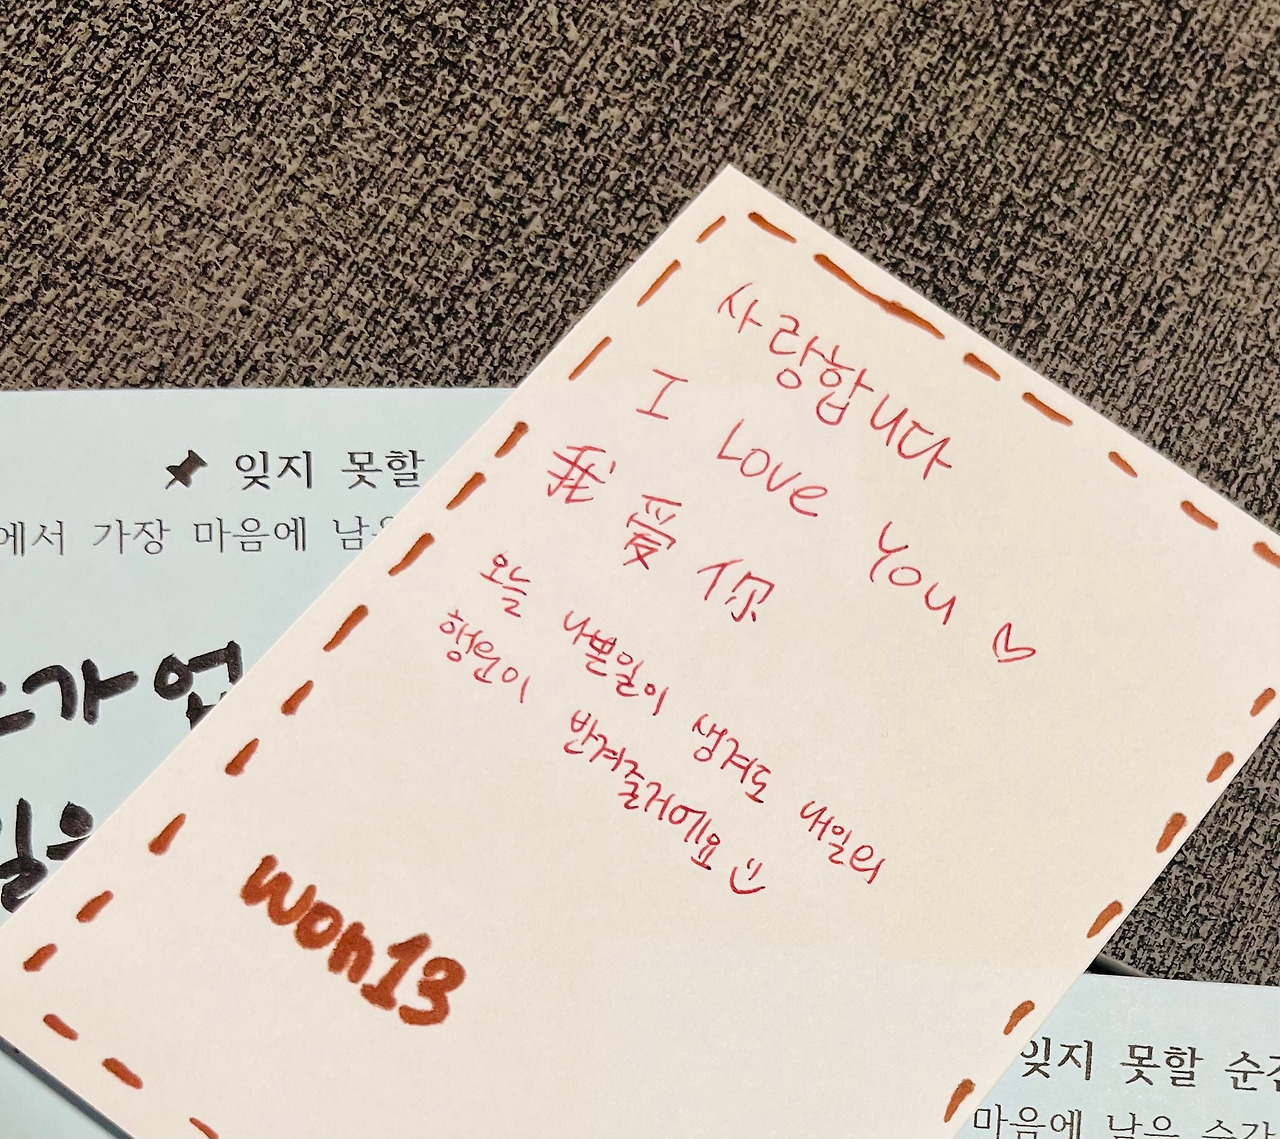 사랑합니다
I Love You
我 爱 你
오늘 나쁜일이 생겨도 내일의
행운이 반겨줄거에요
won13
잊지 못할
에서 가장 마음에
가 없
일은
잊지 못할
마음에 남은